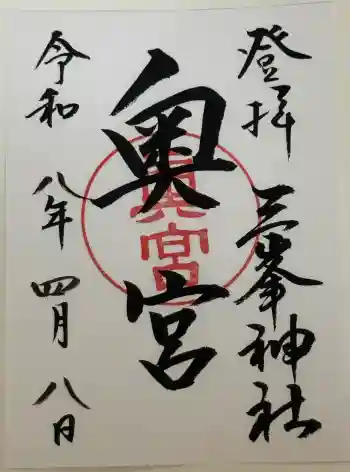 登拝 三峯神社
奥宮
奥宮
令和八年四月八日